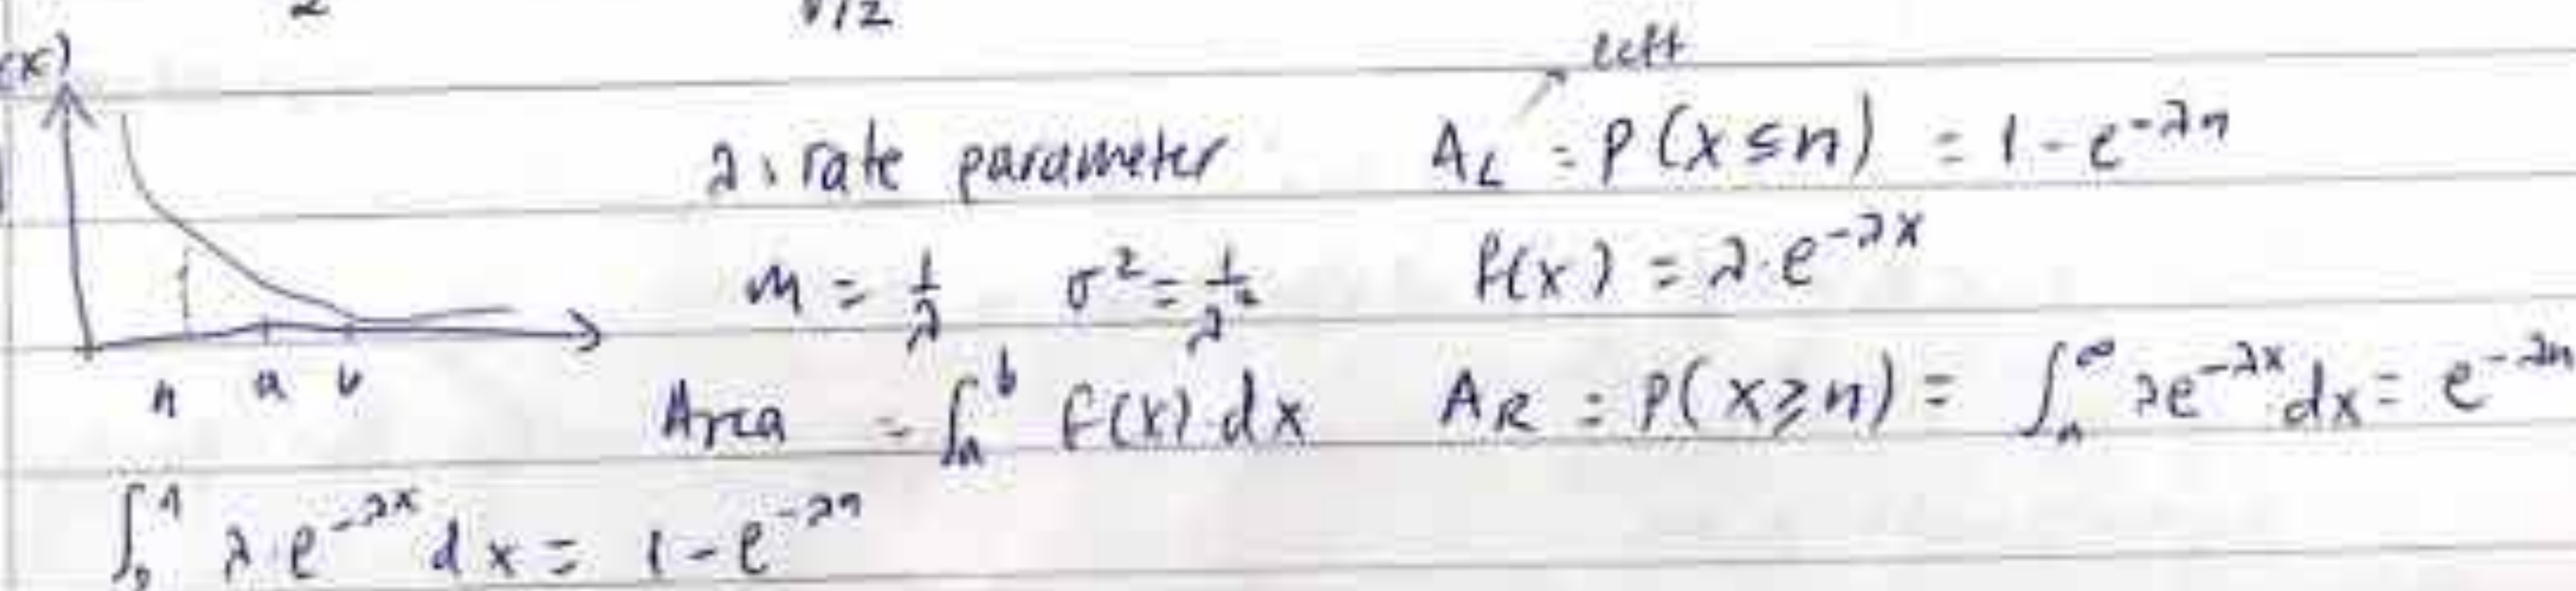 (x)
left
λ: rate parameter    A_L = P(x ≤ n) = 1 - e^{-λn}
M = 1/λ    σ² = 1/λ²    f(x) = λ·e^{-λx}
n a b
Area = ∫_a^b f(x)·dx    A_R = P(x ≥ n) = ∫_n^∞ λe^{-λx} dx = e^{-λn}
∫_0^n λ·e^{-λx} dx = 1 - e^{-λn}